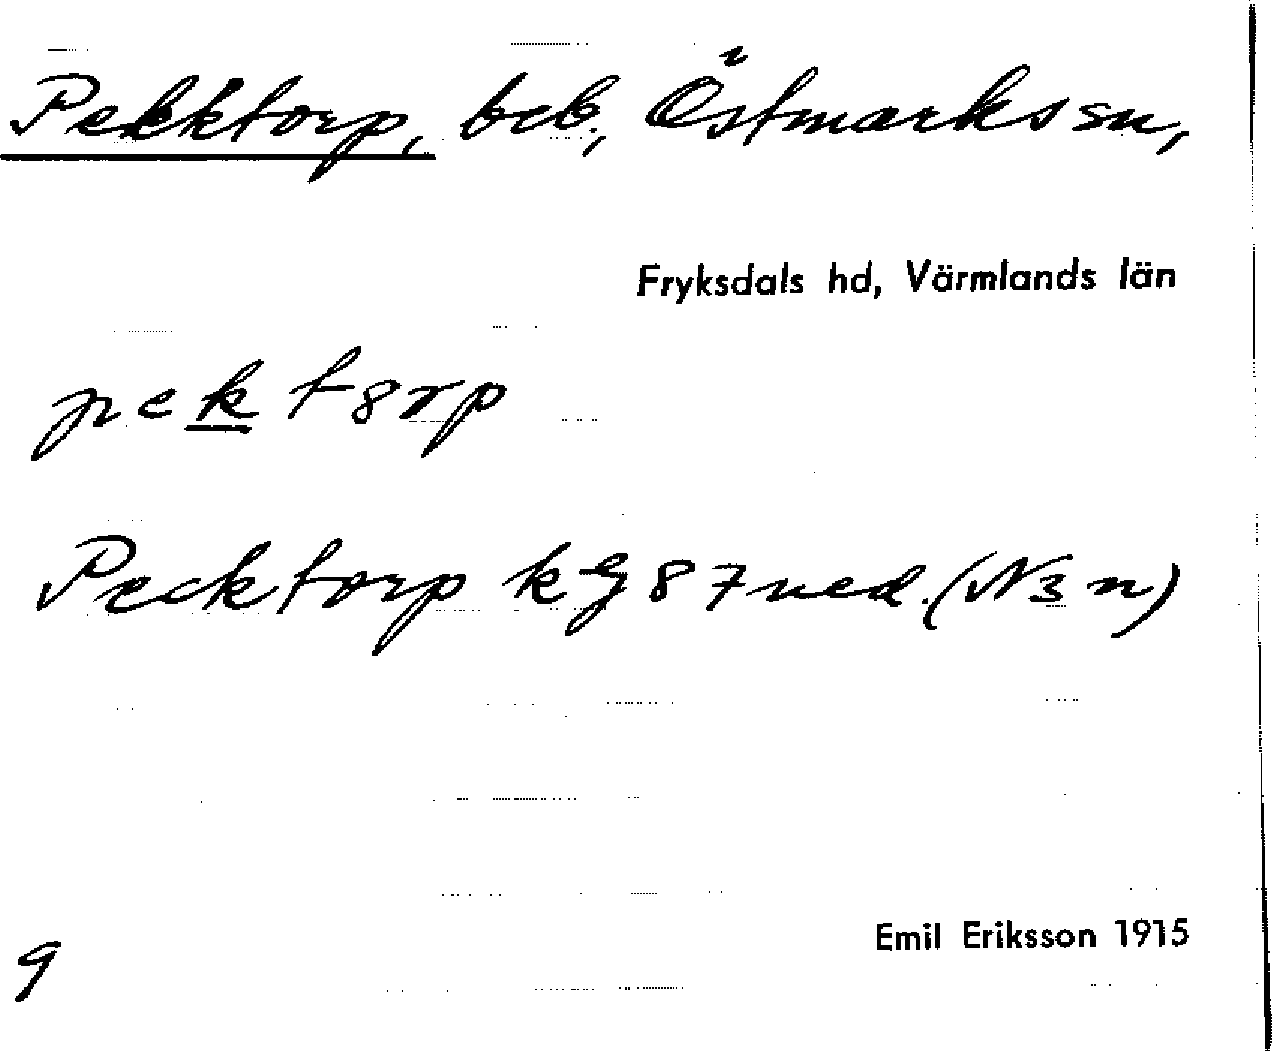 Pekktorp, beb., Östmarks sn,
Fryksdals hd, Värmlands län
pek tȣrp
Pecktorp kg 87 ned. (N3n)
Emil Eriksson 1915
9